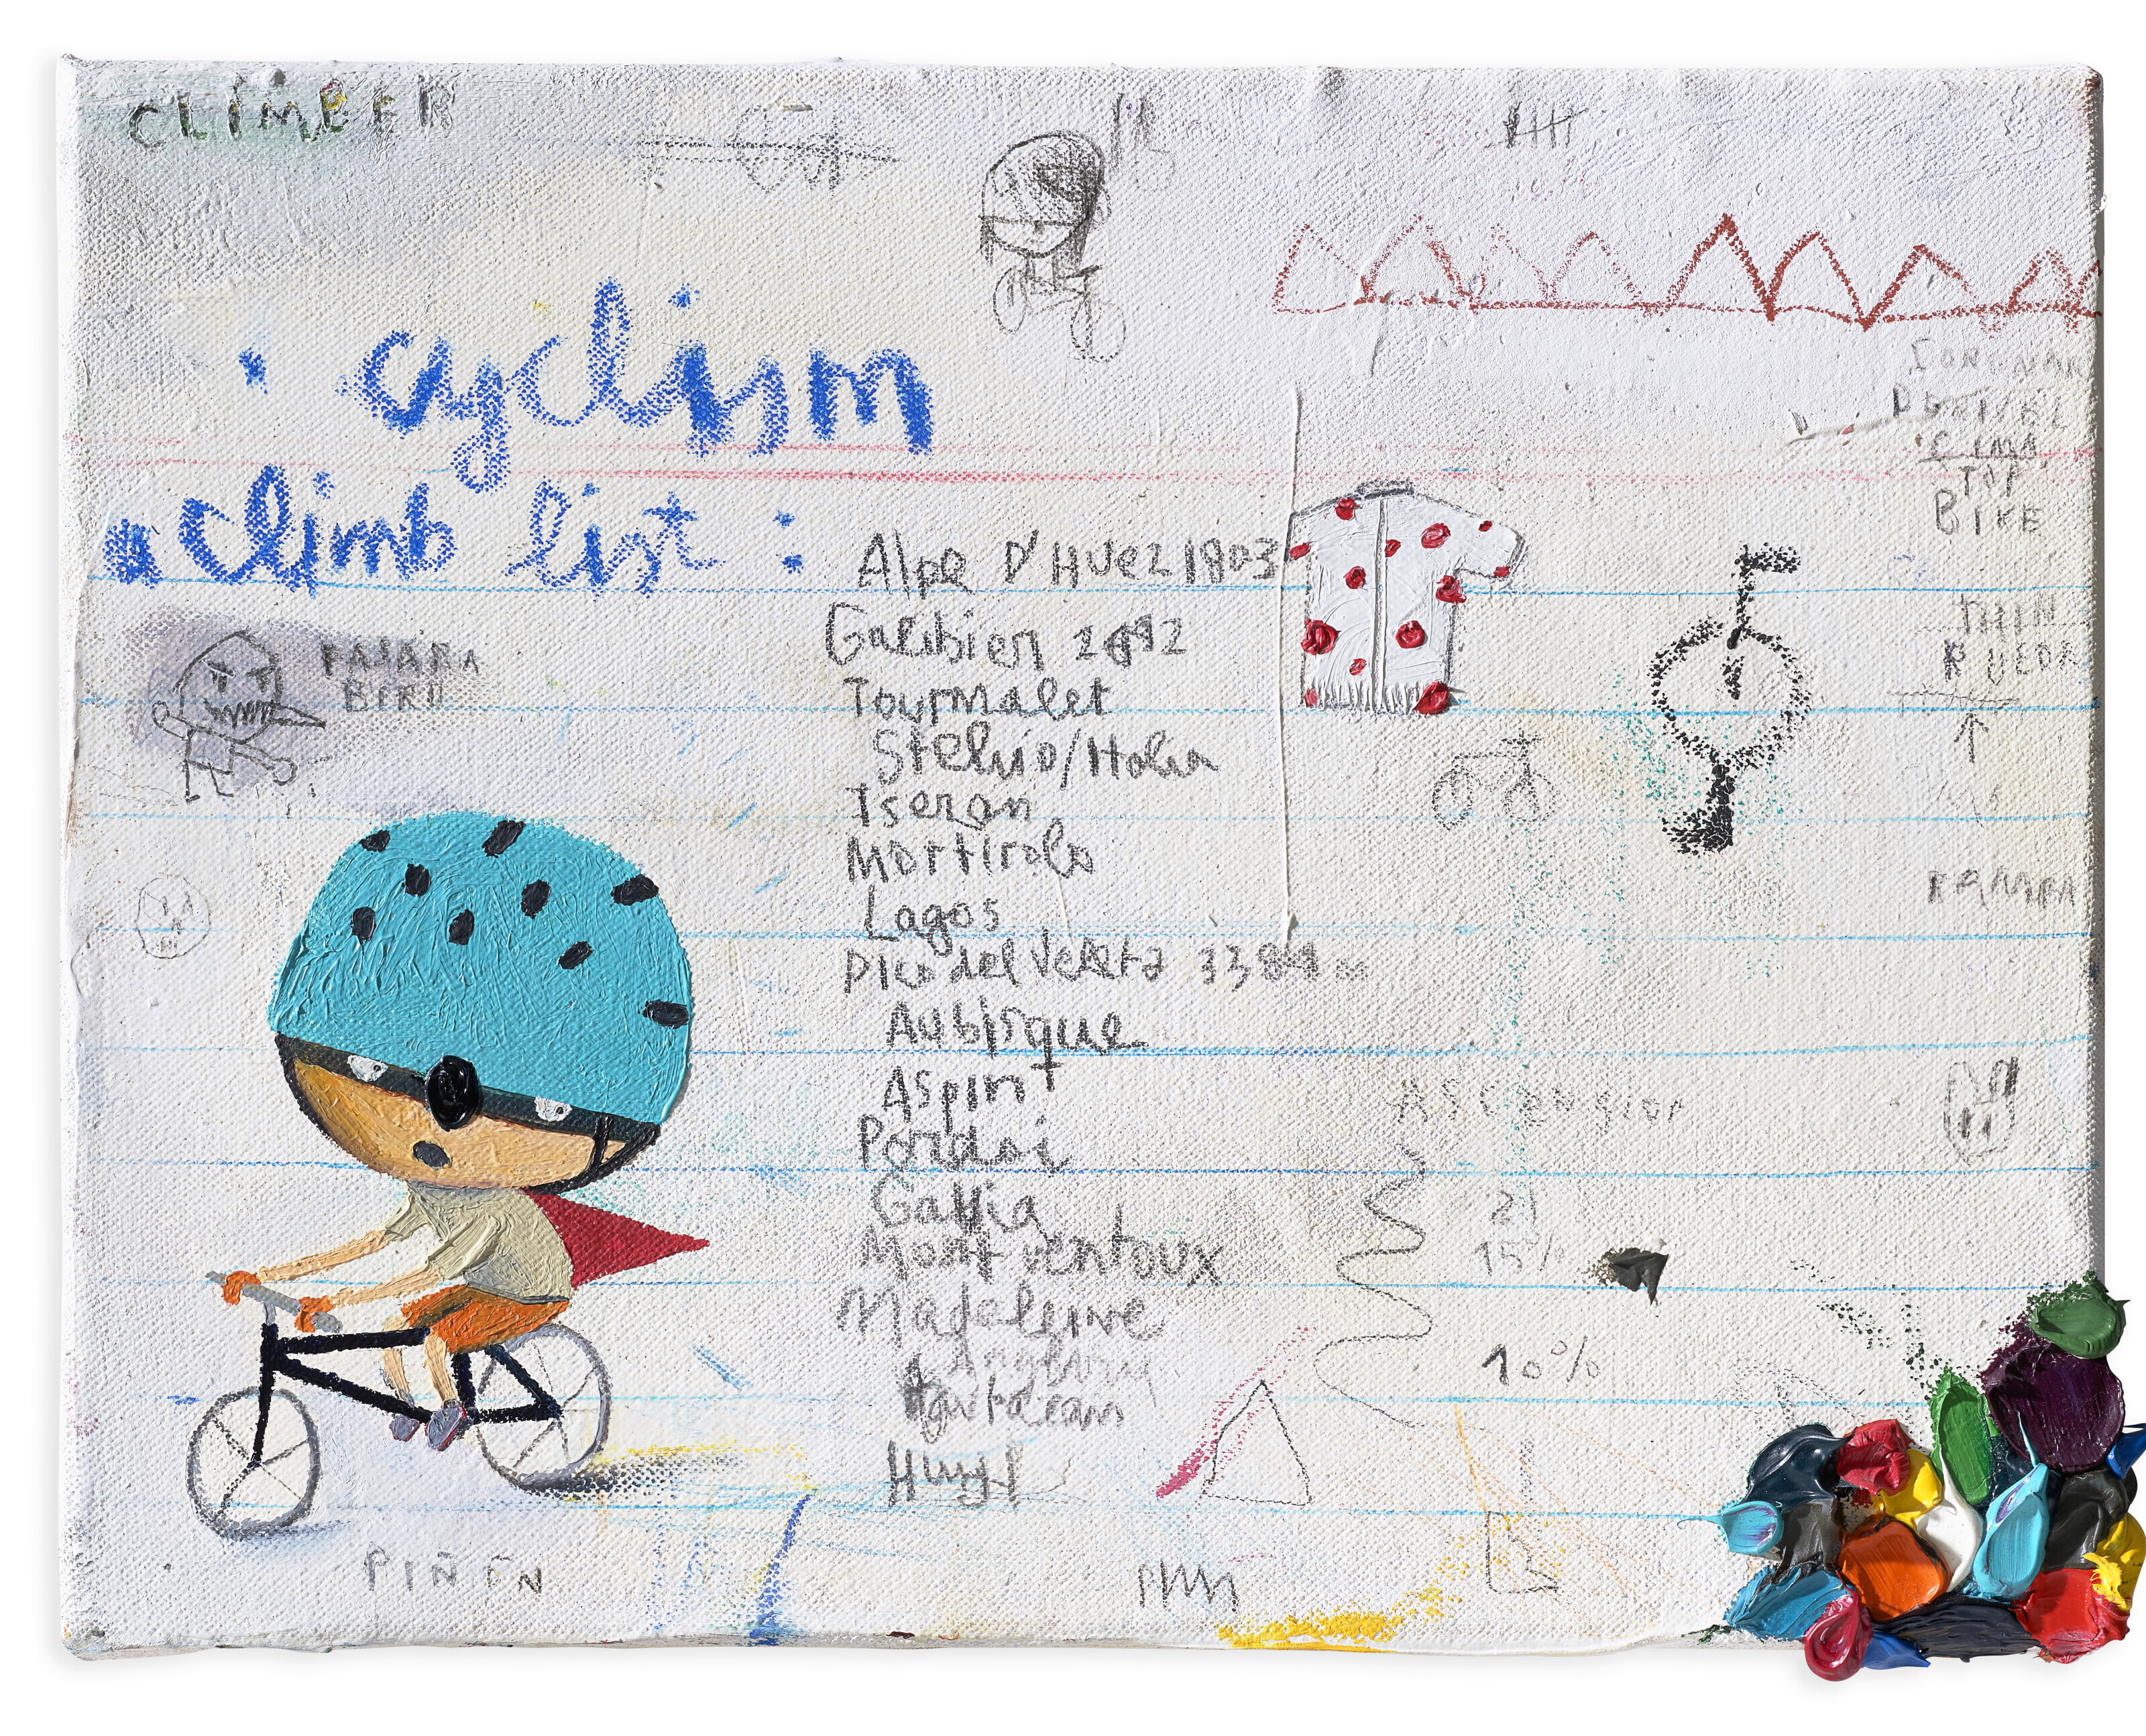 CLIMBER
cyclism
climb list :
Alpe D'HUEZ 1803
Galibier 2692
Tourmalet
Stelvio/Italia
Iseran
Mortirolo
Lagos
Pico del Veleta 3384 m
Aubisque
Aspin
Pordoi
Gavia
Mont ventoux
Madeleine
Angliru
Huy
PAJARA
BIRD
PIÑÓN
DESNIVEL
CIMA
TOP
BIKE
THIN
RUEDA
RAMPA
ASCENSION
21
15%
10%